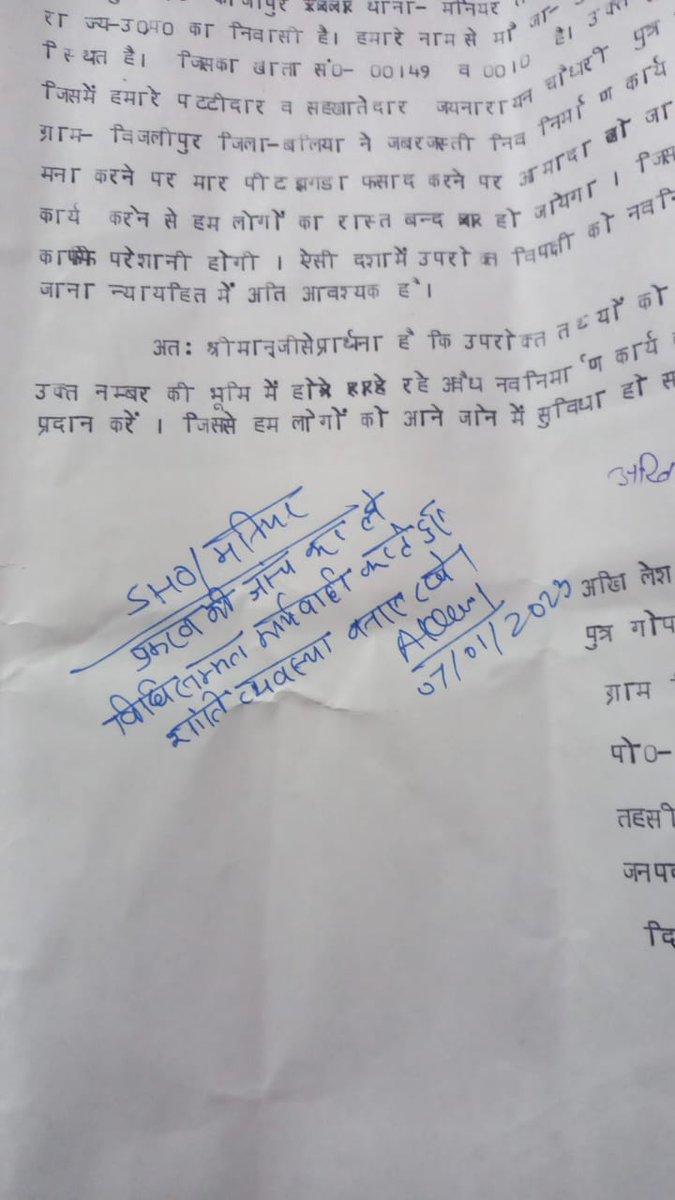 जीपुर थाना- मनियर
रा ज्य-उ0प्र0 का निवासी है। हमारे नाम से मौ जा- उक्त
स्थित है। जिसका खाता सं0- 00149 व 0010 है।
जिसमें हमारे पट्टीदार व सहखातेदार जयनारायन चौधरी पुत्र
ग्राम- विजलीपुर जिला-बलिया ने जबरजस्ती निव निर्मा ण कार्य
मना करने पर मार पीट झगडा फसाद करने पर आमादा हो जा
कार्य करेन से हम लोगों का रास्त बन्द हो जायेगा । जिस
काफी परेशानी होगी । ऐसी दशामें उपरोक्त विपक्षी को नवनि
जाना न्यायहित में अति आवश्यक है।
अत: श्रीमान्जीसेप्रार्थना है कि उपरोक्त तथ्यों को
उक्त नम्बर की भूमि में हो रहे अवैध नवनिर्मा ण कार्य
प्रदान करें । जिससे हम लोगों को आने जाने में सुविधा हो स
अखि
SHO/मनियर
प्रकरण की जांच कर लें
विधिसम्मत कार्यवाही करते हुए
शांति व्यवस्था बनाए रखें।
07/01/2023
अखि लेश
पुत्र गोप
ग्राम
पो0-
तहसी
जनपद
दि